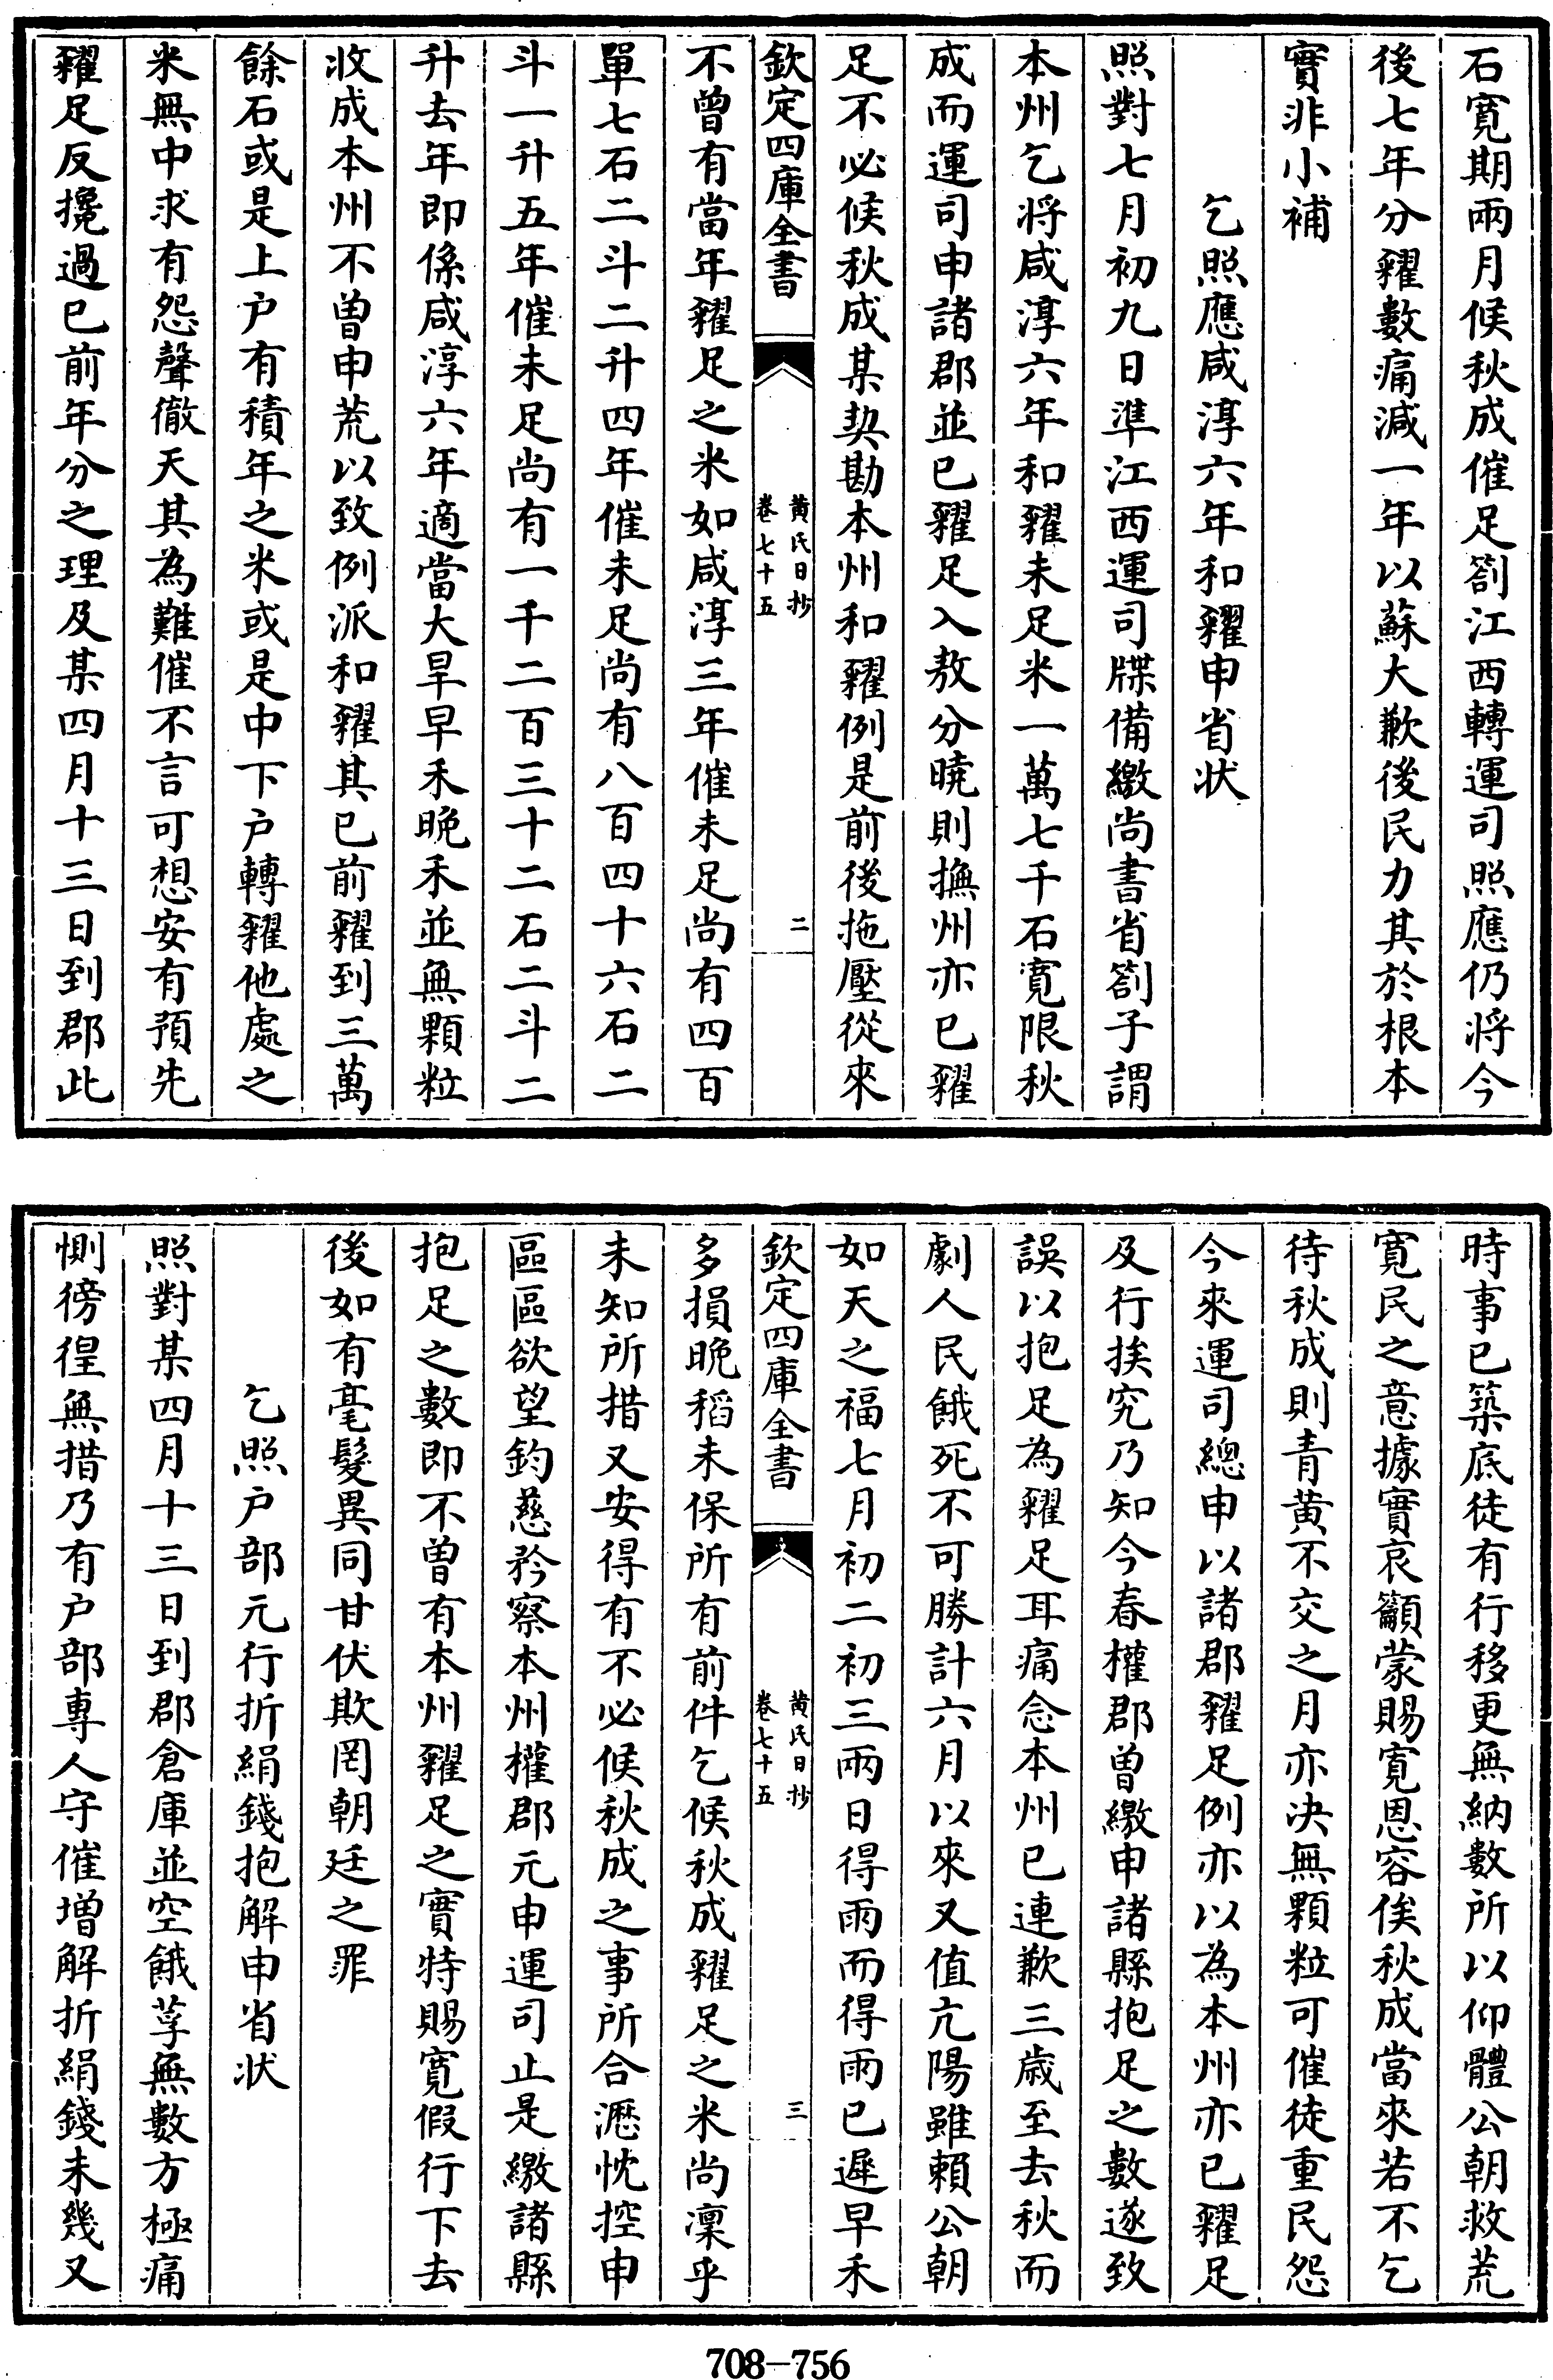 石寛期兩月候秋成催足劄江西轉運司照應仍將今
後七年分糴數痛減一年以蘇大歉後民力其於根本
實非小補
乞照應咸淳六年和糴申省狀
照對七月初九日準江西運司牒備繳尚書省劄子謂
本州乞將咸淳六年和糴未足米一萬七千石寛限秋
成而運司申諸郡並已糴足入敖分曉則撫州亦已糴
足不必候秋成某契勘本州和糴例是前後拖壓從來
欽定四庫全書
黄氏日抄
卷七十五
二
不曾有當年糴足之米如咸淳三年催未足尚有四百
單七石二斗二升四年催未足尚有八百四十六石二
斗一升五年催未足尚有一千二百三十二石二斗二
升去年即係咸淳六年適當大旱早禾晚禾並無顆粒
收成本州不曾申荒以致例派和糴其已前糴到三萬
餘石或是上户有積年之米或是中下户轉糴他處之
米無中求有怨聲徹天其為難催不言可想安有預先
糴足反攙過已前年分之理及某四月十三日到郡此
時事已築底徒有行移更無納數所以仰體公朝救荒
寛民之意據實哀籲蒙賜寛恩容俟秋成當來若不乞
待秋成則青黄不交之月亦决無顆粒可催徒重民怨
今來運司總申以諸郡糴足例亦以為本州亦已糴足
及行挨究乃知今春權郡曾繳申諸縣抱足之數遂致
誤以抱足為糴足耳痛念本州已連歉三歳至去秋而
劇人民餓死不可勝計六月以來又值亢陽雖賴公朝
如天之福七月初二初三兩日得雨而得雨已遲早禾
欽定四庫全書
黄氏日抄
卷七十五
三
多損晚稻未保所有前件乞候秋成糴足之米尚凜乎
未知所措又安得有不必候秋成之事所合瀝忱控申
區區欲望鈞慈矜察本州權郡元申運司止是繳諸縣
抱足之數即不曾有本州糴足之實特賜寛假行下去
後如有毫髮異同甘伏欺罔朝廷之罪
乞照户部元行折絹錢抱解申省狀
照對某四月十三日到郡倉庫並空餓莩無數方極痛
惻徬徨無措乃有户部專人守催增解折絹錢未幾又
708-756